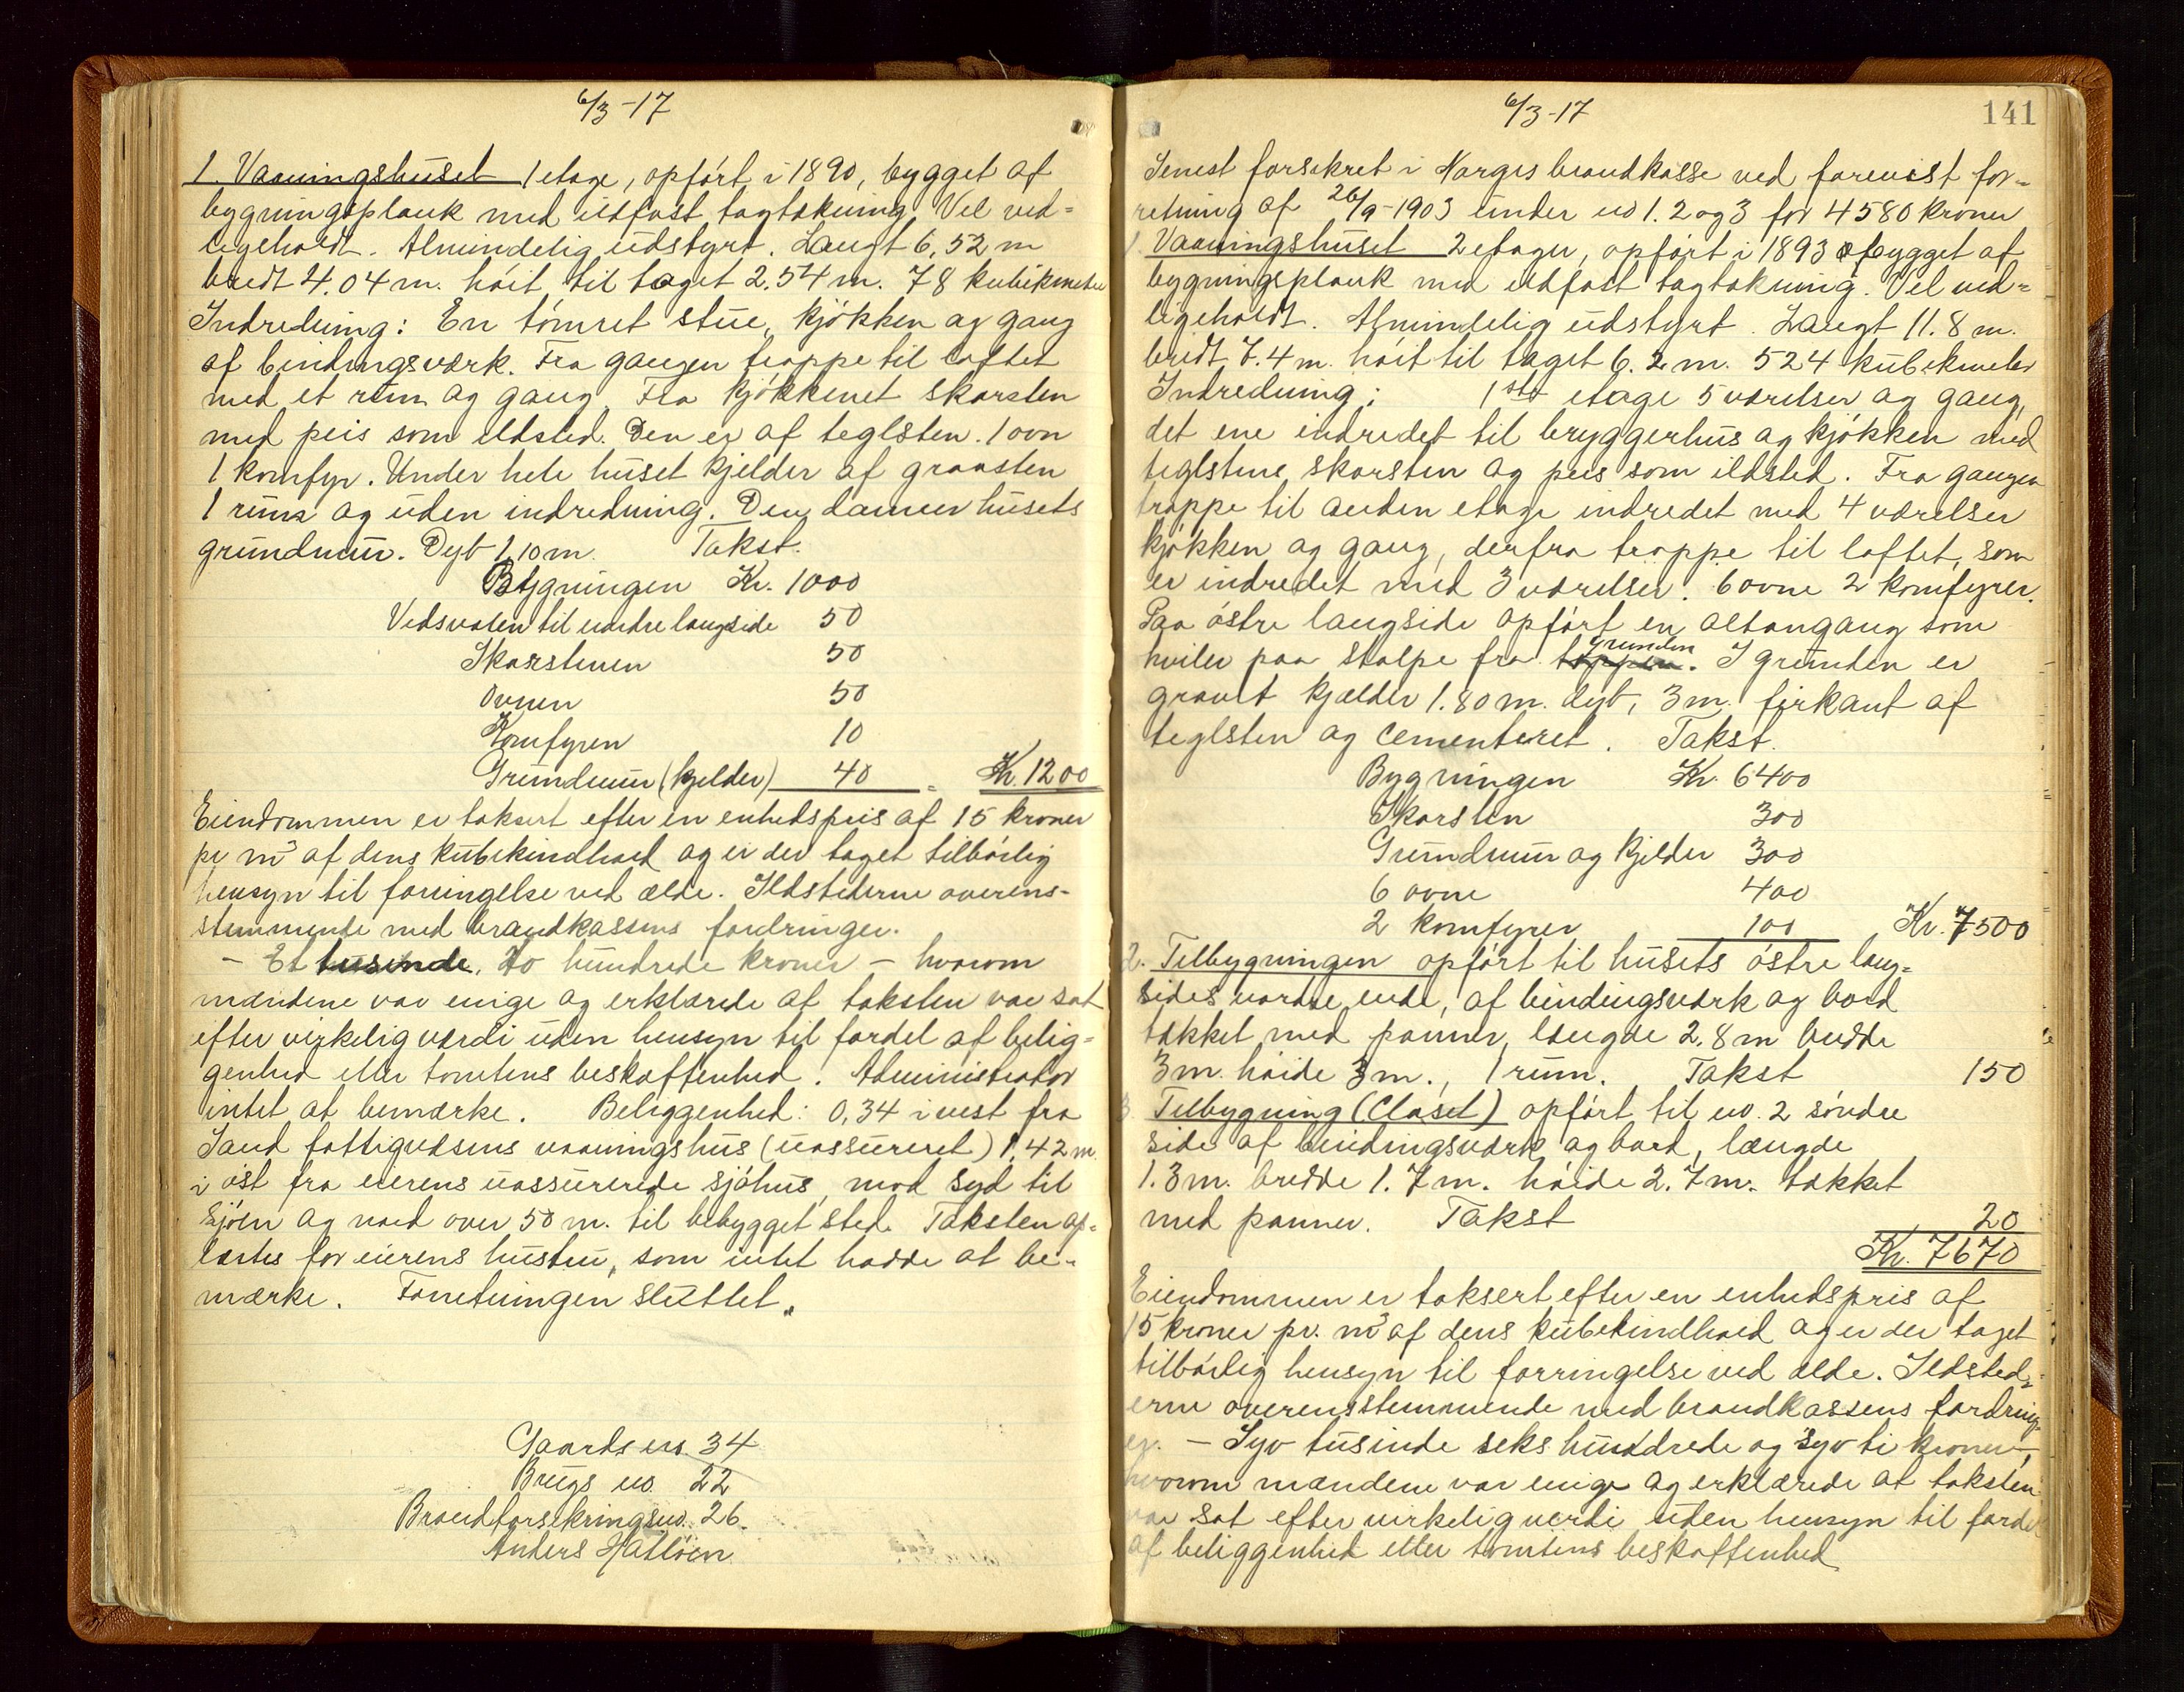 6/3-17
1. Vaaningshuset 1 etage, opført i 1890, bygget af
bygningsplank med ildfast tagtækning. Vel ved=
ligeholdt. Almindelig udstyrt. Langt 6,52 m
bredt 4.04 m. høit til taget 2.54 m. 78 kubikmeter
Indredning: En tømret stue, kjøkken og gang
af bindingsværk. Fra gangen trappe til loftet
med et rum og gang. Fra kjøkkenet skorsten
med peis som ildsted. Den er af teglsten. 1 ovn
1 komfyr. Under hele huset kjelder af graasten
1 rum og uden indredning. Den danner husets
grundmur. Dyb 1,10 m. Takst.
Bygningen Kr. 1000
Vedsvalen til nordre langside 50
Skorstenen 50
Ovnen 50
Komfyren 10
Grundmur (kjelder) 40 = Kr. 1200
Eiendommen er taksert efter en enhedspris af 15 kroner
pr m³ af dens kubikindhold og er der taget tilbørlig
hensyn til forringelse ved ælde. Ildstederne overens-
stemmende med brandkassens fordringer.
- Et tusinde, to hundrede kroner - hvorom
mændene var enige og erklærede at taksten var sat
efter virkelig værdi uden hensyn til fordel af belig=
genhed eller tomtens beskaffenhed. Administrator
intet at bemærke. Beliggenhed: 0,34 i vest fra
Sand fattigvæsens vaaningshus (uassureret) 1,42 m.
i øst fra eierens uassurerede sjøhus, mod syd til
sjøen og nord over 50 m. til bebygget sted. Taksten op=
læstes for eierens hustru, som intet hadde at be-
mærke. Forretningen sluttet.
Gaards no. 34
Brugs no. 22
Brandforsikringsno. 26.
Anders Hatløen
6/3-17
141
Senest forsikret i Norges brandkasse ved forevist for=
retning af 26/9-1903 under no 1. 2 og 3 for 4580 kroner
1. Vaaningshuset 2 etager, opført i 1893 af bygget af
bygningsplank med ildfast tagtækning. Vel ved=
ligeholdt. Almindelig udstyrt. Langt 11.8 m.
bredt 7.4 m. høit til taget 6.2 m. 524 kubikmeter
Indredning: 1ste etage 5 værelser og gang,
det ene indredet til bryggerhus og kjøkken med
teglstens skorsten og peis som ildsted. Fra gangen
trappe til anden etage indredet med 4 værelser
kjøkken og gang, derfra trappe til loftet, som
er indredet med 3 værelser. 6 ovne 2 komfyrer.
Paa østre langside opført en altangang som
hviler paa stolpe fra toppen grunden. I grunden er
gravet kjælder 1.80 m. dyb, 3 m. firkant af
teglsten og cementeret. Takst.
Bygningen Kr. 6400
Skorsten 300
Grundmur og kjelder 300
6 ovne 400
2 komfyrer 100 Kr. 7500
2. Tilbygningen opført til husets østre lang=
sides nordre ende, af bindingsværk og bord
tækket med panner, længde 2.8 m bredde
3 m. høide 3 m., 1 rum. Takst 150
3. Tilbygning (Closet) opført til no. 2 søndre
side af bindingsværk og bord, længde
1.3 m. bredde 1.7 m. høide 2.7 m. tækket
med panner. Takst 20
Kr. 7670
Eiendommen er taksert efter en enhedspris af
15 kroner pr. m³ af dens kubikindhold og er der taget
tilbørlig hensyn til forringelse ved ælde. Ildsted=
erne overensstemmende med brandkassens fordring=
er. - Syv tusinde seks hundrede og syv ti kroner -,
hvorom mændene var enige og erklærede at taksten
var sat efter virkelig værdi uden hensyn til fordel
af beliggenhed eller tomtens beskaffenhed